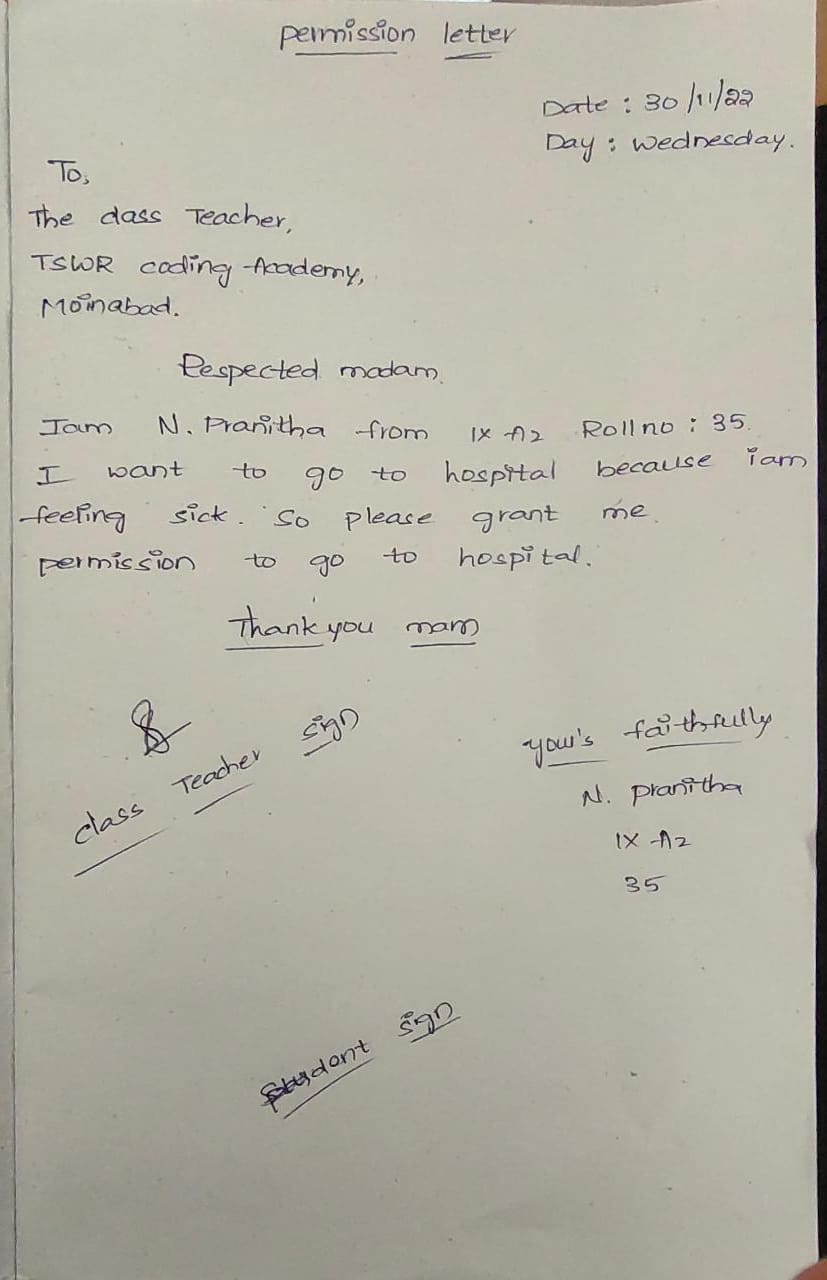 permission letter
Date : 30/11/22
Day : wednesday.
To,
The class Teacher,
TSWR coding Academy,
Moinabad.
Respected madam.
Iam N. Pranitha from IX A2 Roll no : 35.
I want to go to hospital because iam
feeling sick. So please grant me
permission to go to hospital.
Thank you mam
class Teacher sign
your's faithfully
N. pranitha
IX A2
35
student sign